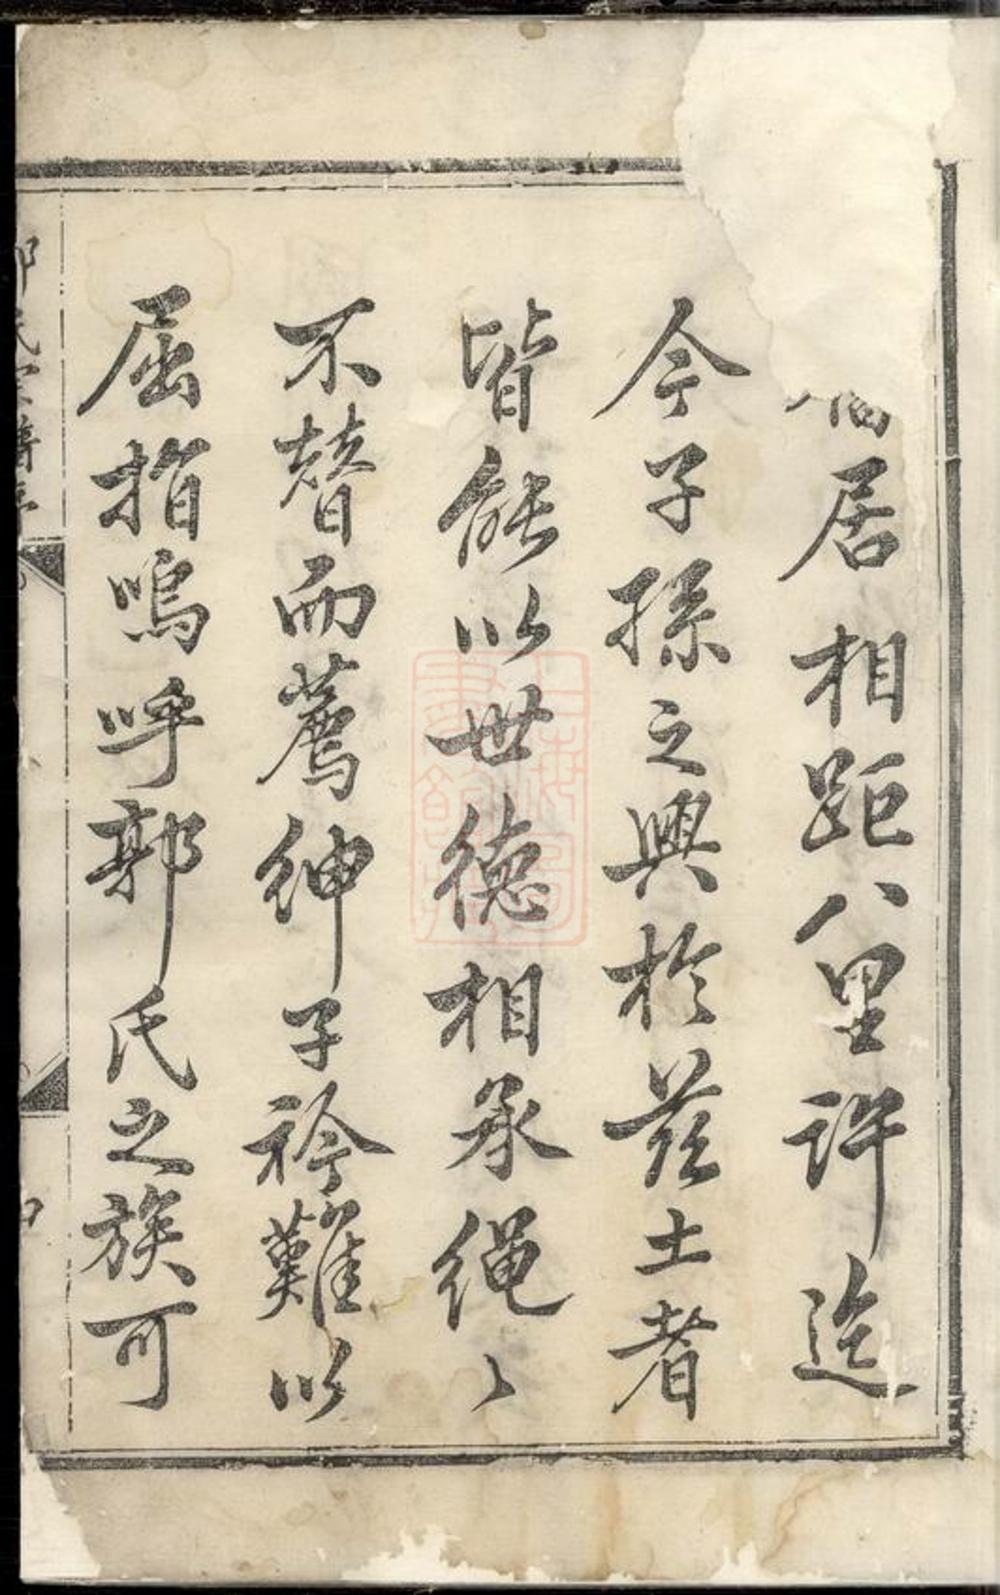 居相距八里許迄
今子孫之興於茲土者
皆能以世德相承繩〻
不替而薦紳子衿難以
屈指嗚呼郭氏之族可